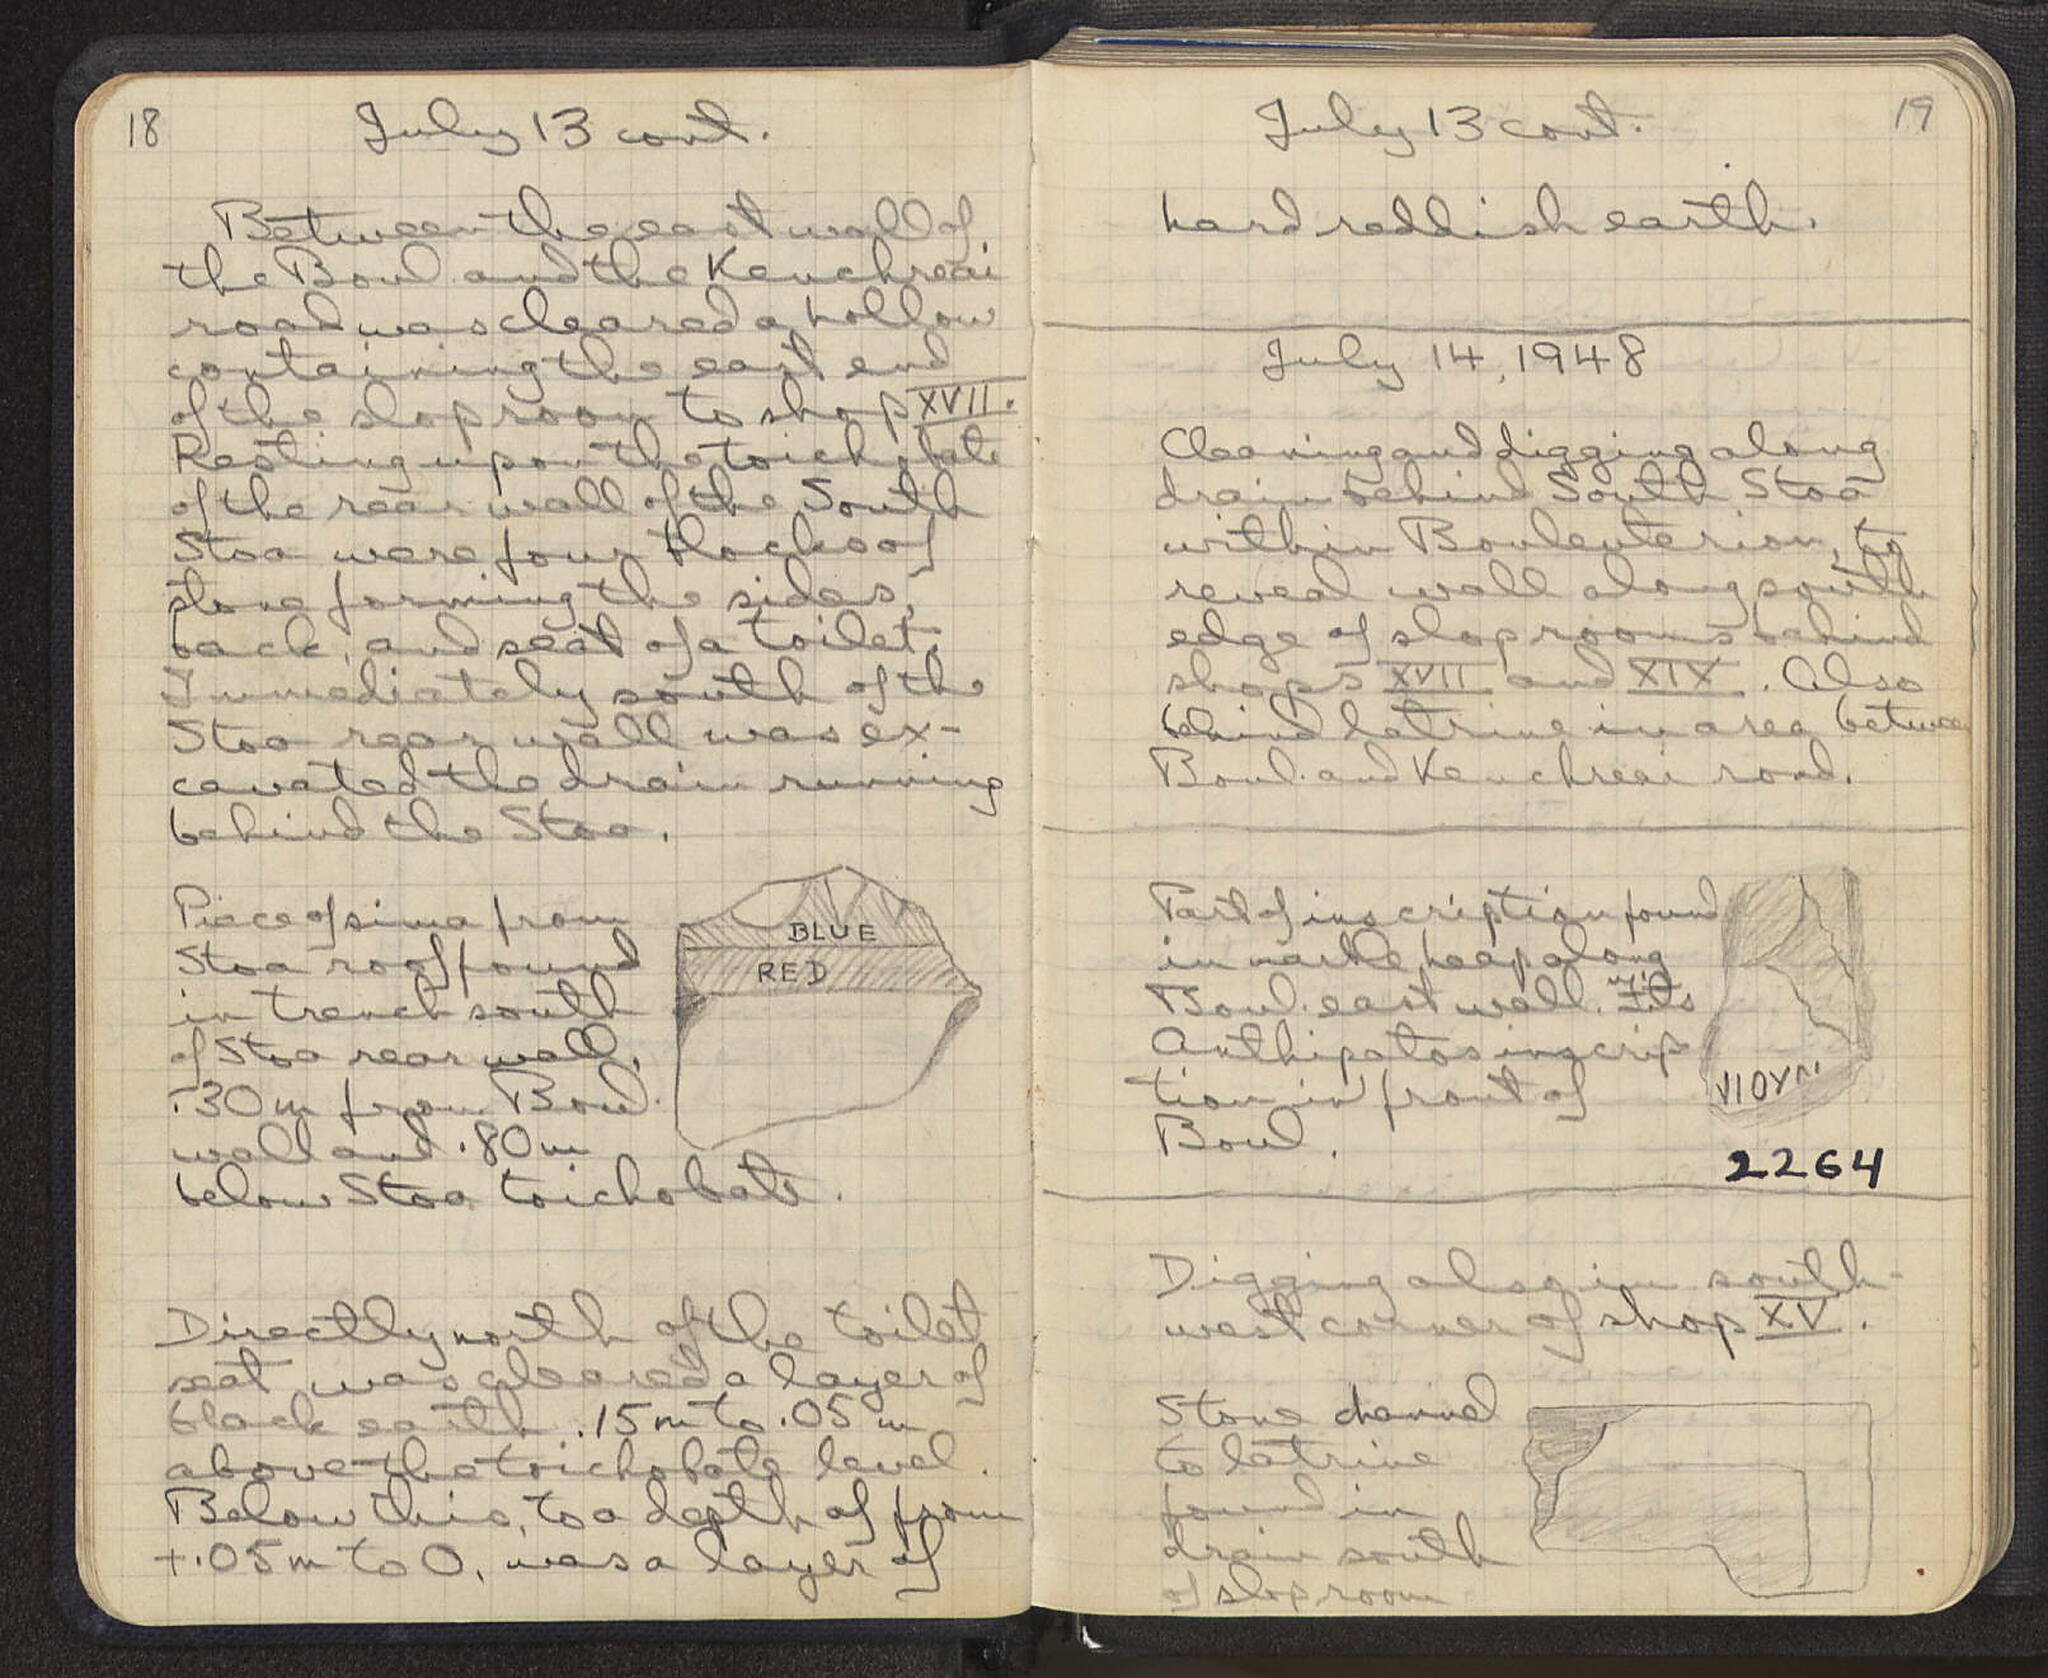 18
July 13 cont.
Between the east wall of
the Boul and the Kenchreai
road was cleared a hollow
containing the east end
of the slop room to shop XVII.
Resting upon the toichobate
of the rear wall of the South
Stoa were four blocks of
stone forming the sides,
back, and seat of a toilet.
Immediately south of the
Stoa rear wall was ex-
cavated the drain running
behind the Stoa.
Piece of sima from
Stoa roof found
in trench south
of Stoa rear wall,
.30m from Boul.
wall and .80m
below Stoa toichobate.
BLUE
RED
Directly north of the toilet
seat was cleared a layer of
black earth .15m to .05m
above the toichobate level.
Below this, to a depth of from
+.05m to 0, was a layer of
19
July 13 cont.
hard reddish earth.
July 14, 1948
Cleaning and digging along
drain behind South Stoa
within Bouleuterion, to
reveal wall along south
edge of slop rooms behind
shops XVII and XIX. Also
behind latrine in area between
Boul. and Kenchreai road.
Part of inscription found
in marble heap along
Boul. east wall.
Anthipatos inscrip
tion in front of
Boul.
2264
Digging also in south-
west corner of shop XV.
Stone channel
to latrine
found in
drain south
of slop room